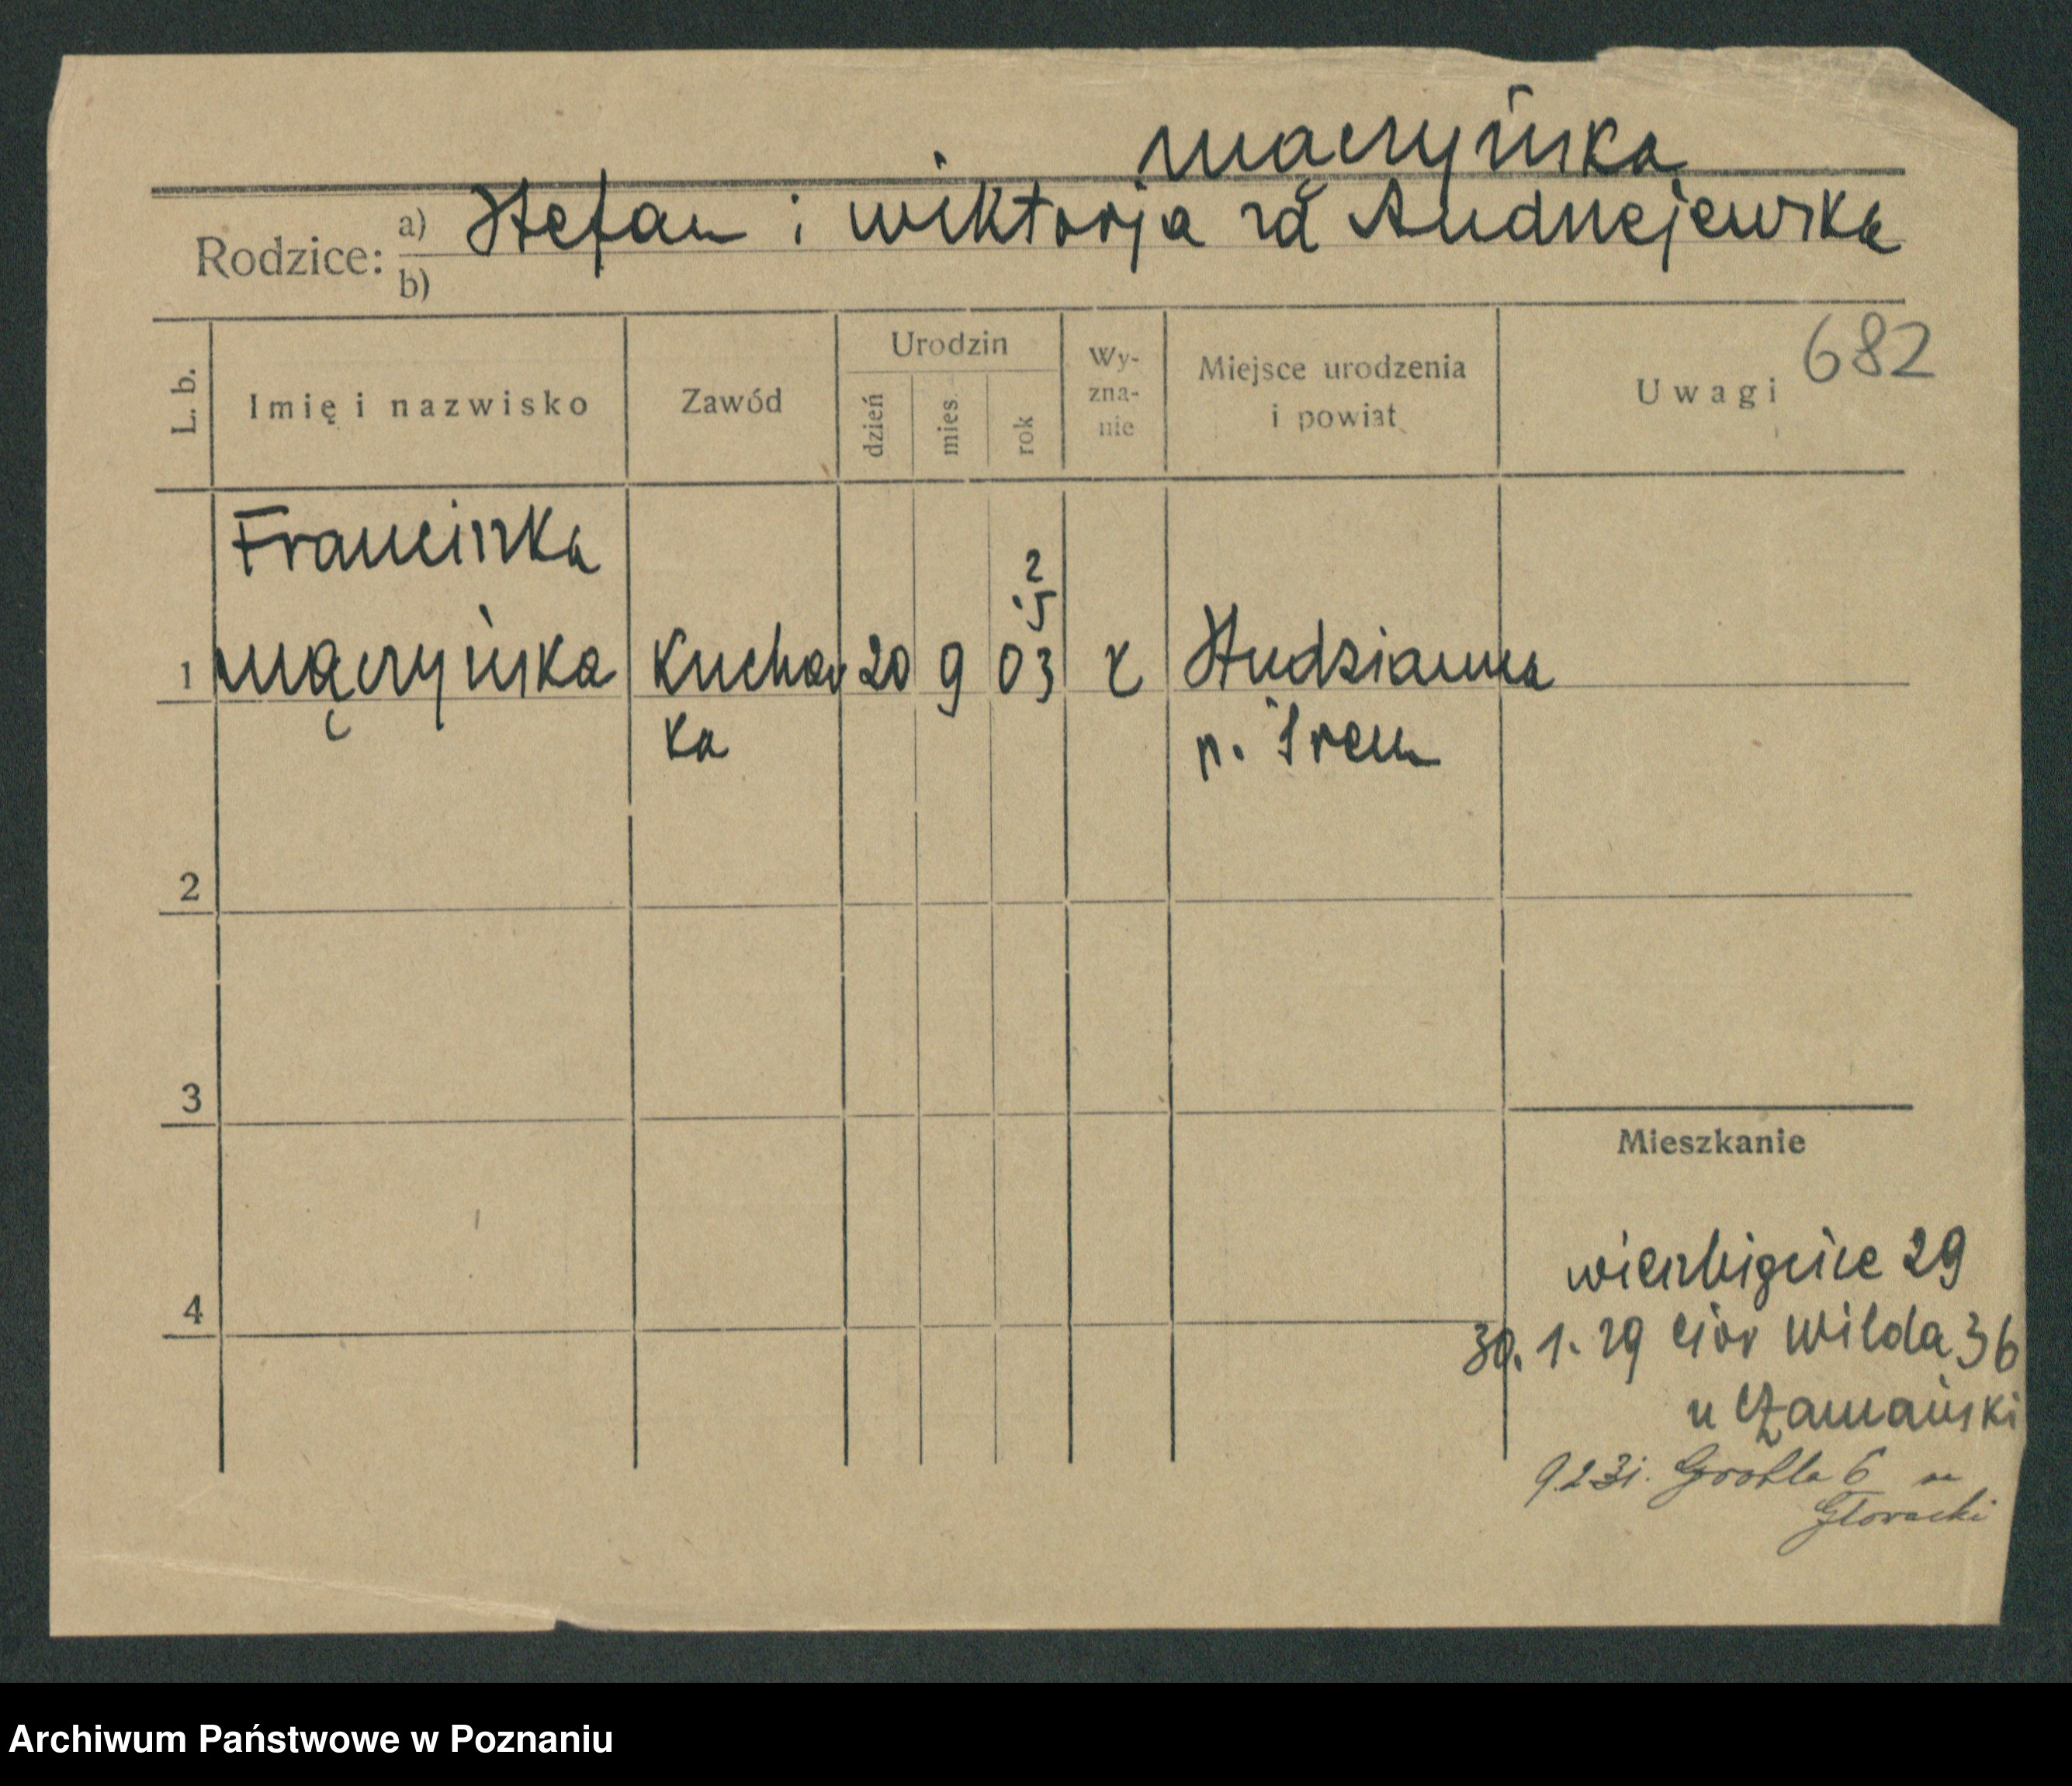 Mączyńska
Rodzice: a) Stefan i Wiktorja zd Andrzejewska
b)
682
L. b. Imię i nazwisko Zawód Urodzin dzień mies. rok Wy-zna-nie Miejsce urodzenia i powiat Uwagi
Franciszka
2
5
1 Mączyńska Kuchar 20 9 03 k Studzianna
ka p. Śrem
2
3
Mieszkanie
Wierzbięcice 29
4
30. 1. 29 Wilda 36
u Czamański
9.2 31. Grobla 6 u
Głowacki
Archiwum Państwowe w Poznaniu